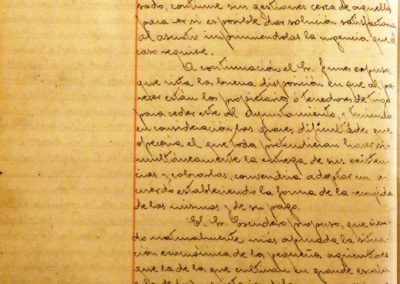 rado, continúe sus gestiones cerca de aquellos
para ver si es posible dar solución satisfactoria
al asunto imprimiéndolas la urgencia que el
caso requiere.
A continuación el Sr. Funes expuso,
que vista la buena disposición en que al pa-
recer están los propietarios ó tenedores de trigo
para ceder este al Ayuntamiento, y teniendo
en consideración las graves dificultades que
ofrecería el que todos pretendieran hacer si-
multáneamente la entrega de sus existen-
cias y cobrarlas, convendría adoptar un a-
cuerdo estableciendo la forma de la recogida
de las mismas y de su pago.
El Sr. propuso, que sien-
do normalmente mas apurada la situa-
ción económica de los pequeños agricultores
que la de los que cultivan en grande esca-